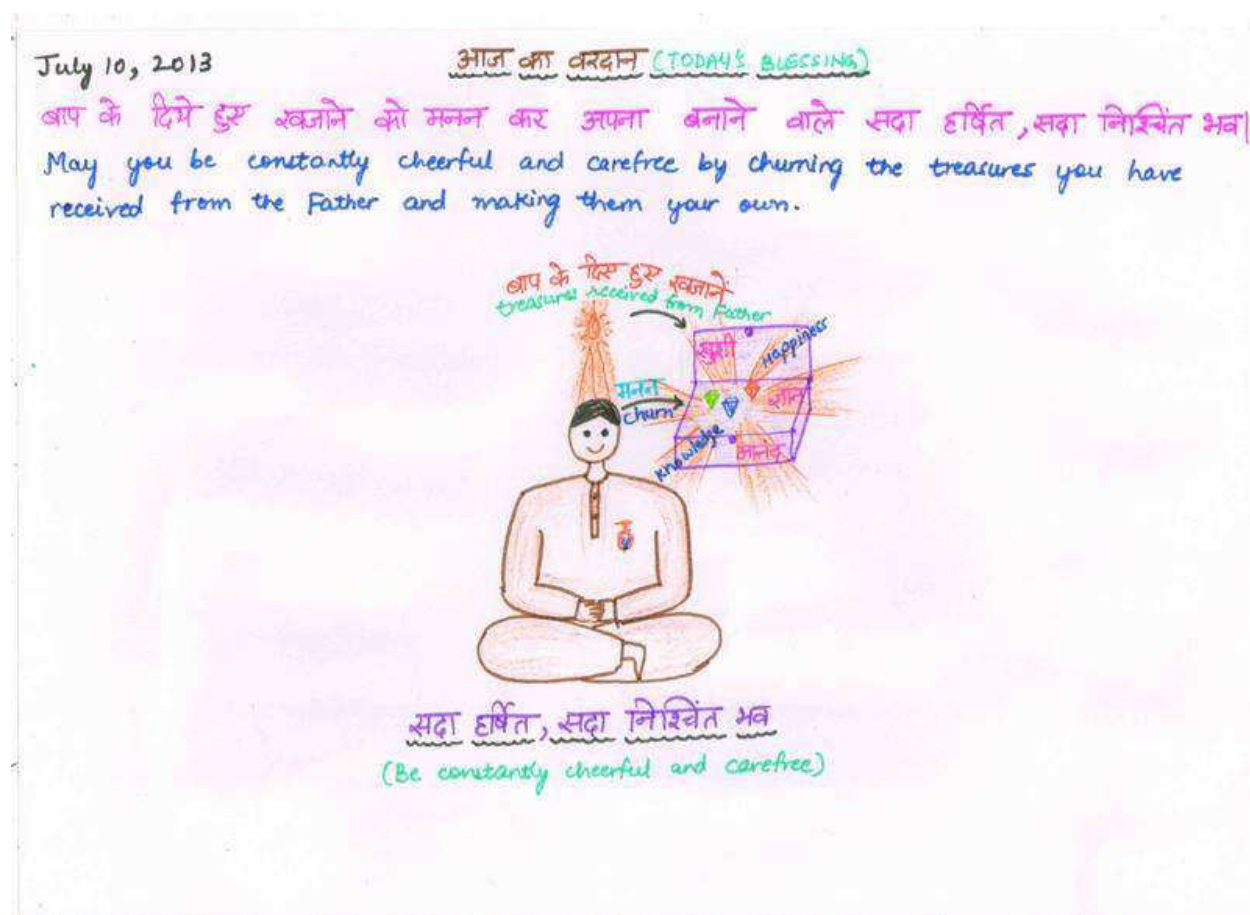 July 10, 2013
आज का वरदान (TODAY'S BLESSING)
बाप के दिये हुए खजाने को मनन कर अपना बनाने वाले सदा हर्षित, सदा निश्चिंत भव|
May you be constantly cheerful and carefree by churning the treasures you have
received from the Father and making them your own.
बाप के दिए हुए खजानें
treasures received from Father
खुशी
Happiness
मनन
churn
ज्ञान
knowledge
आनंद
सदा हर्षित, सदा निश्चिंत भव
(Be constantly cheerful and carefree)